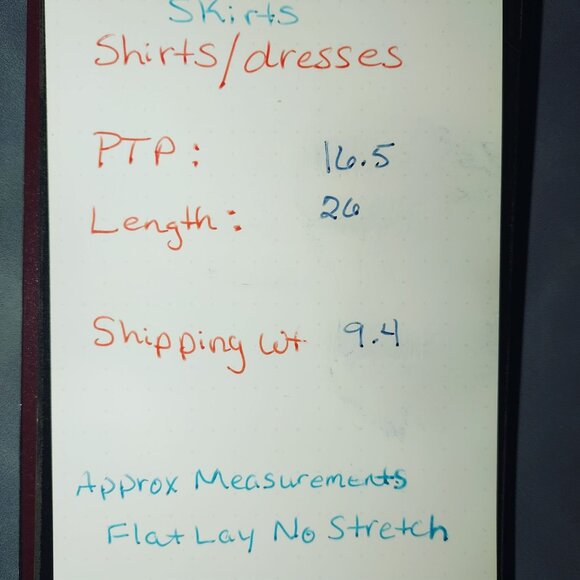 Skirts
Shirts/dresses
PTP: 16.5
Length: 26
Shipping Wt 9.4
Approx Measurements
Flat Lay No Stretch